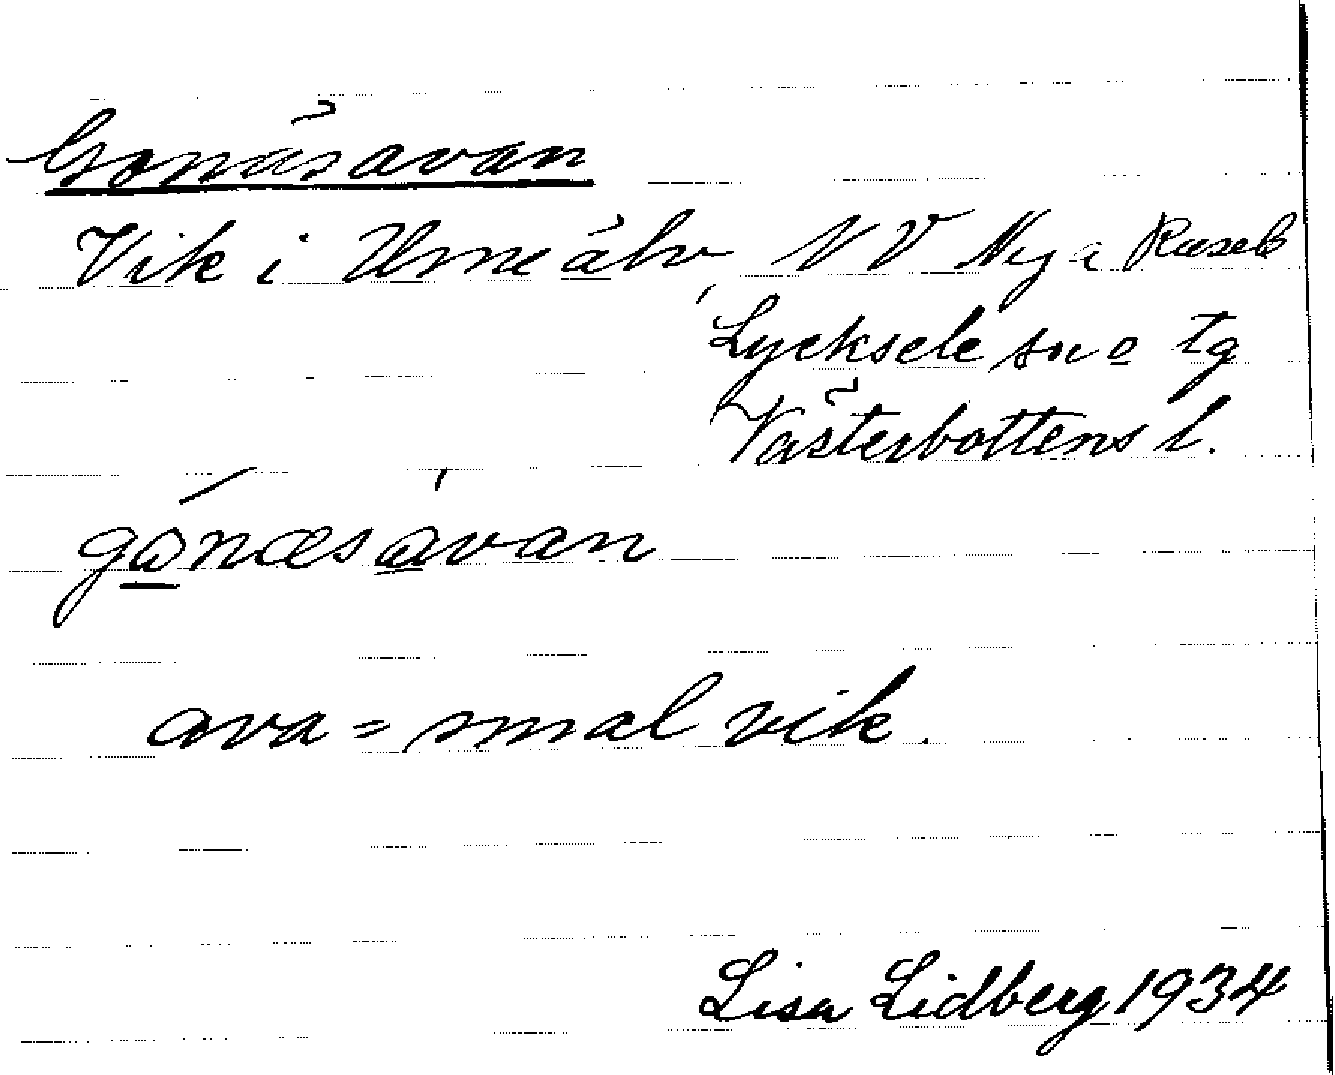 Gonäsavan
Vik i Umeälv, NV Nya Ruseb
Lycksele sn o tg
Västerbottens l.
gånæsåvan
ava = smal vik.
Lisa Lidberg 1934